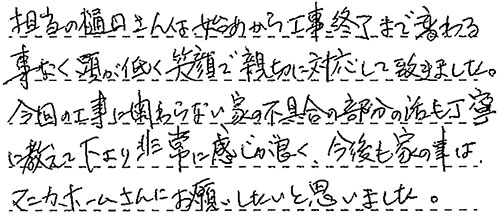 担当の樋口さんは始めから工事終了まで変わる
事なく頭が低く笑顔で親切に対応して致きました。
今回の工事に関わらない家の不具合の部分の話も丁寧
に教えて下より非常に感じが良く、今後も家の事は、
マニカホームさんにお願いしたいと思いました。